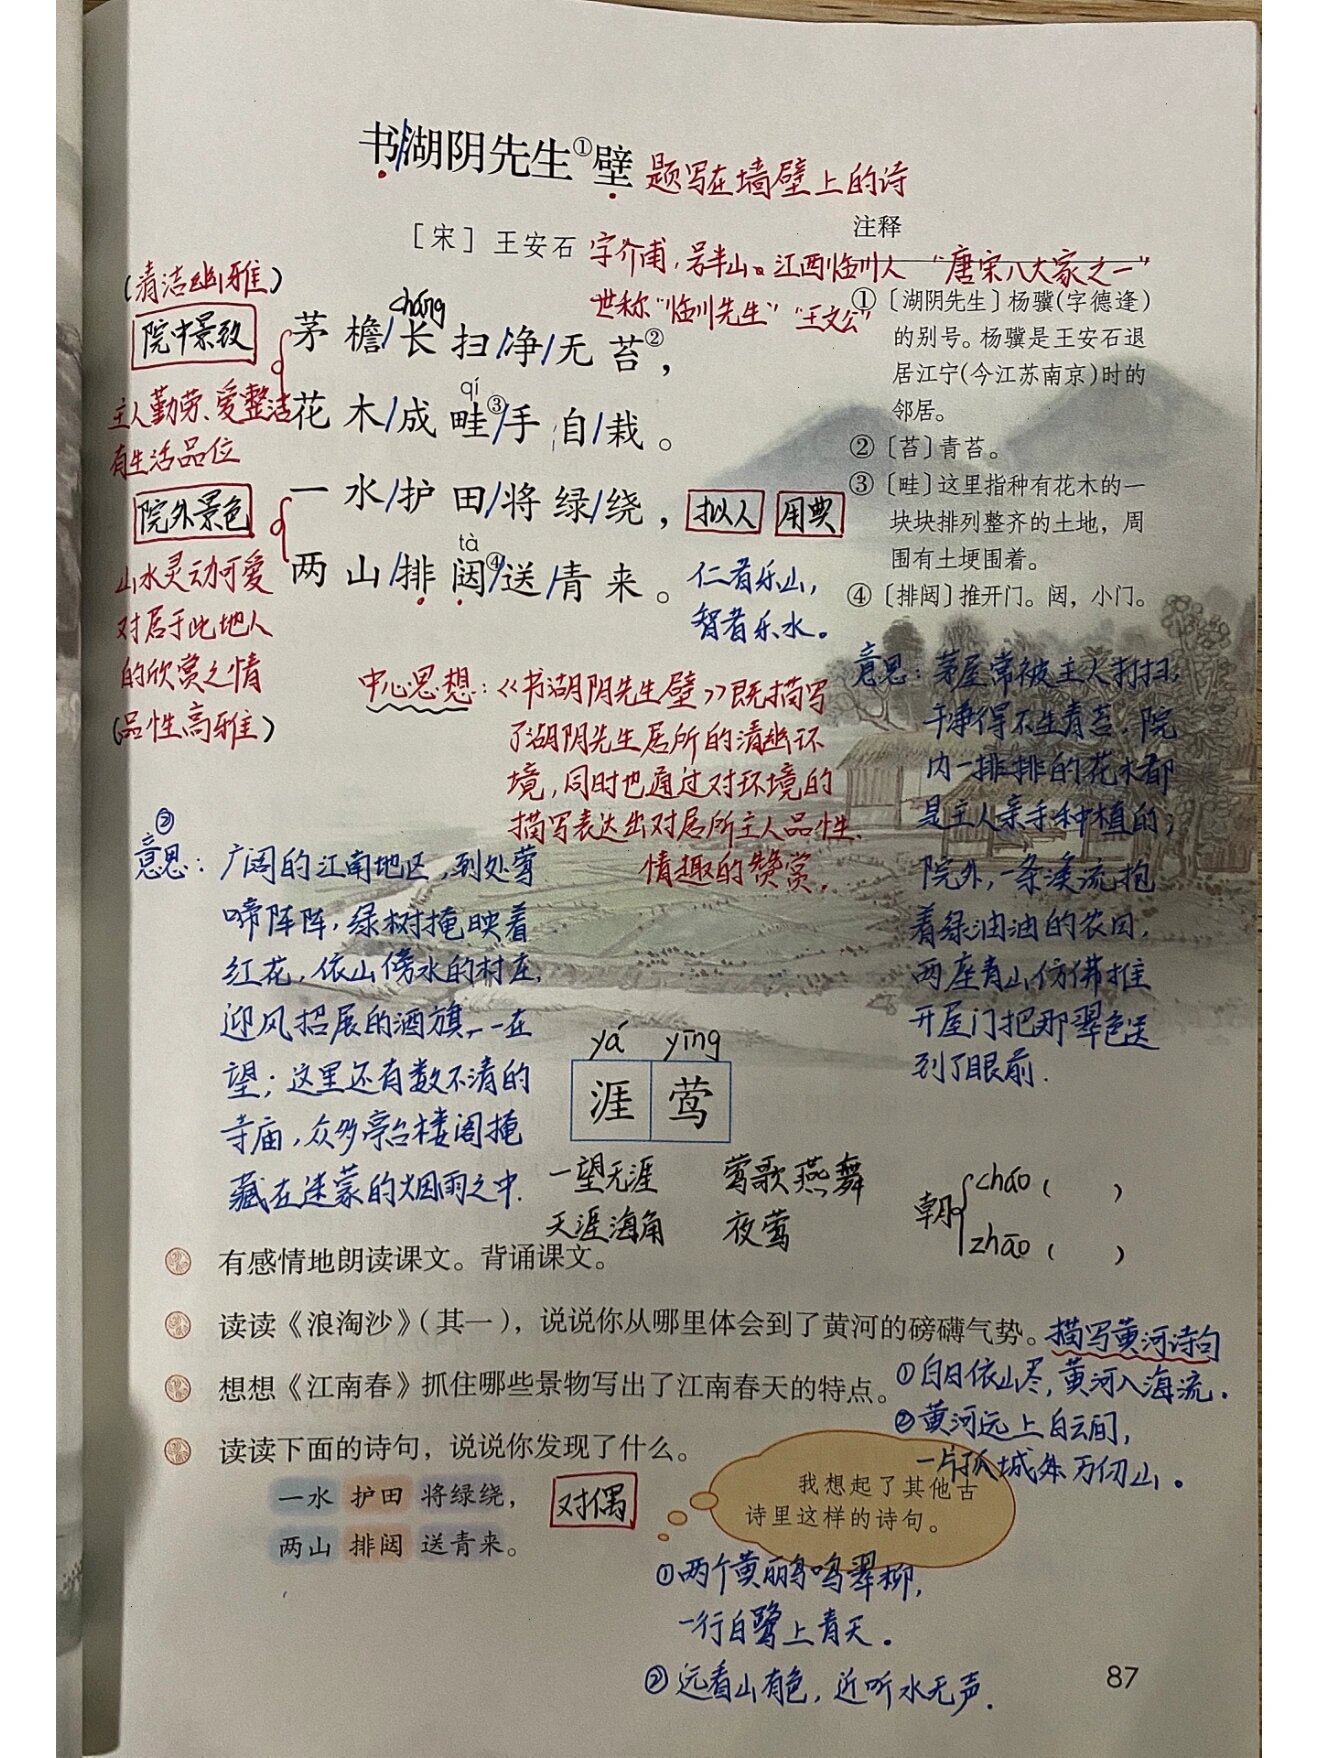 书湖阴先生①壁 题写在墙壁上的诗
［宋］王安石 字介甫，号半山。江西临川人 “唐宋八大家之一”
世称“临川先生”“王文公”
(清洁幽雅)
院中景致
主人勤劳、爱整洁
有生活品位
院外景色
山水灵动可爱
对居于此地人
的欣赏之情
(品性高雅)
cháng
茅檐/长扫/净/无苔②，
qí
花木/成畦③/手自/栽。
一水/护田/将绿/绕，
tà
两山/排闼④/送/青来。
拟人 用典
仁者乐山，
智者乐水。
注释
①〔湖阴先生〕杨骥(字德逢)
的别号。杨骥是王安石退
居江宁(今江苏南京)时的
邻居。
②〔苔〕青苔。
③〔畦〕这里指种有花木的一
块块排列整齐的土地，周
围有土埂围着。
④〔排闼〕推开门。闼，小门。
中心思想：《书湖阴先生壁》既描写
了湖阴先生居所的清幽环
境，同时也通过对环境的
描写表达出对居所主人品性、
情趣的赞赏。
意思：茅屋常被主人打扫，
干净得不生青苔，院
内一排排的花木都
是主人亲手种植的；
院外，一条溪流抱
着绿油油的农田，
两座青山仿佛推
开屋门把那翠色送
到了眼前.
②
意思：广阔的江南地区，到处莺
啼阵阵，绿树掩映着
红花，依山傍水的村庄，
迎风招展的酒旗，一一在
望；这里还有数不清的
寺庙，众多亭台楼阁掩
藏在迷蒙的烟雨之中.
yá yīng
涯 莺
一望无涯 莺歌燕舞
天涯海角 夜莺
朝 cháo ( )
zhāo ( )
有感情地朗读课文。背诵课文。
读读《浪淘沙》(其一)，说说你从哪里体会到了黄河的磅礴气势。
描写黄河诗句
①白日依山尽，黄河入海流.
②黄河远上白云间，
一片孤城万仞山。
想想《江南春》抓住哪些景物写出了江南春天的特点。
读读下面的诗句，说说你发现了什么。
一水 护田 将绿绕，
两山 排闼 送青来。
对偶
我想起了其他古
诗里这样的诗句。
①两个黄鹂鸣翠柳，
一行白鹭上青天。
②远看山有色，近听水无声.
87